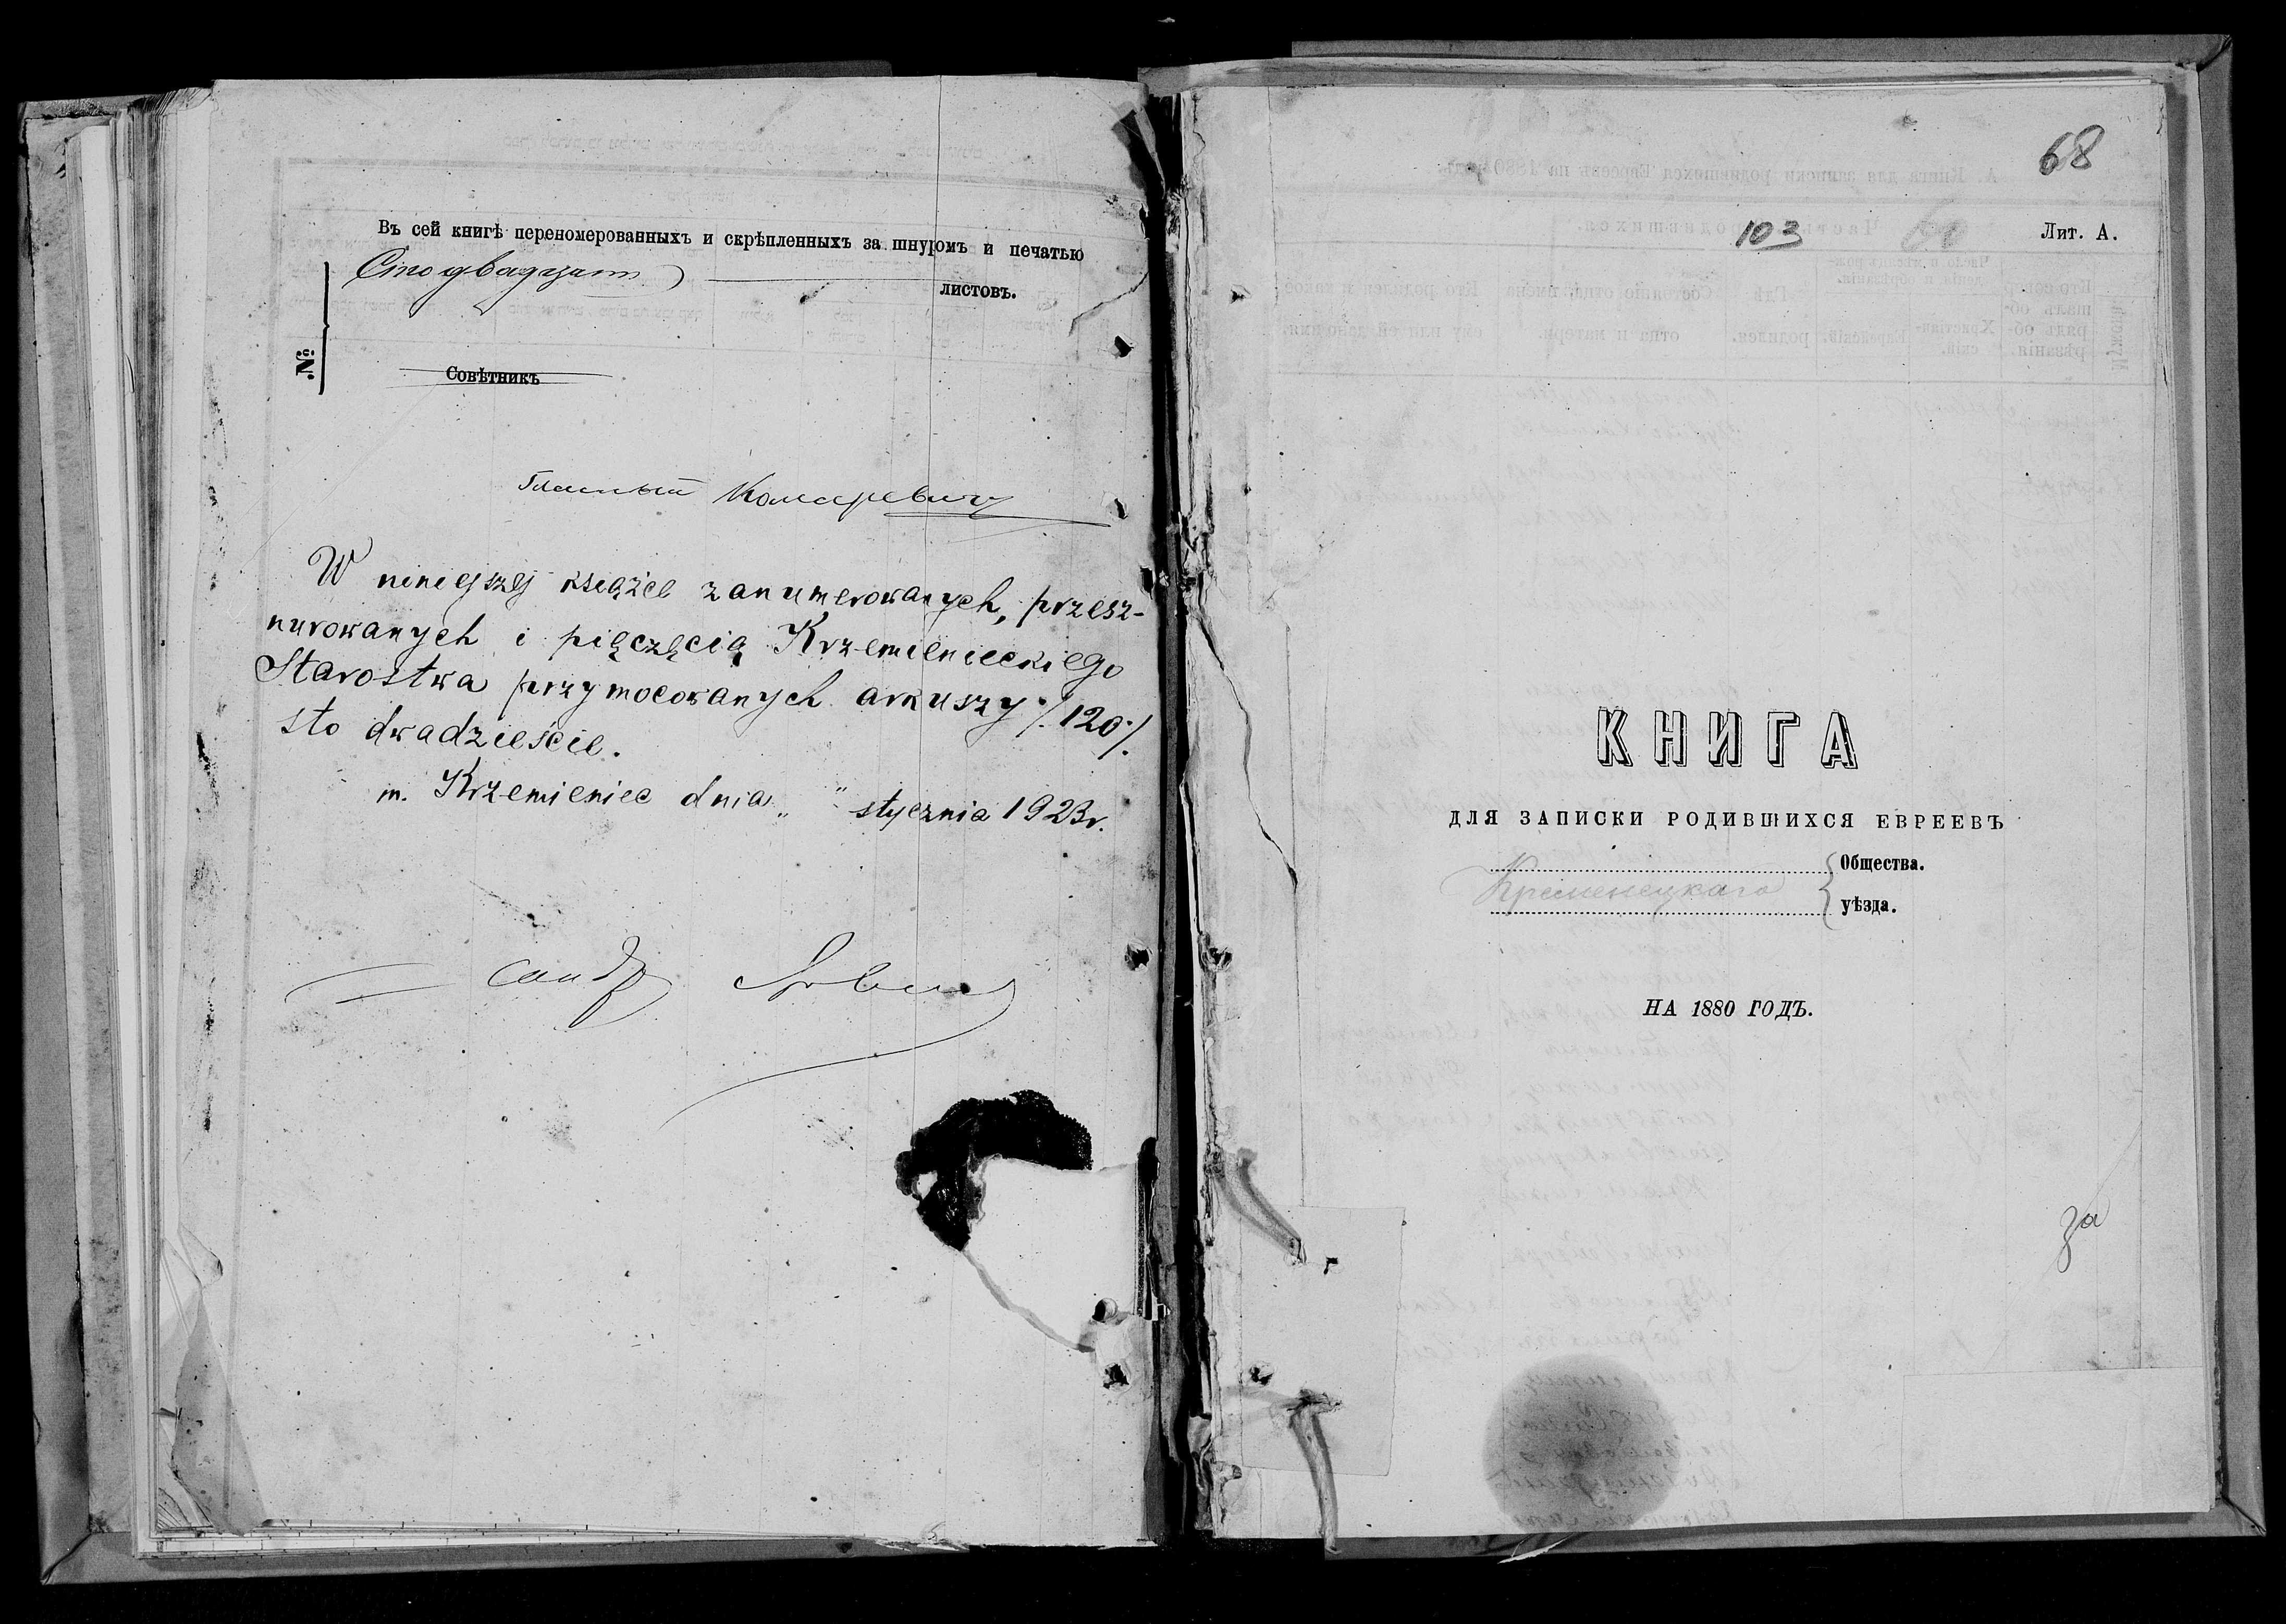 Въ сей книгѣ переномерованныхъ и скрѣпленныхъ за шнуромъ и печатью
Сто двадцать листовъ.
№
Совѣтникъ
Гласный Комаревичъ
W niniejszej książce zanumerowanych, przesz-
nurowanych i pięczęcią Krzemienieckiego
Starostwa przymocowanych arkuszy /.120./
sto dwadzieście.
m. Krzemieniec dnia „ " stycznia 1923 r.
68
103
60
Лит. А.
КНИГА
ДЛЯ ЗАПИСКИ РОДИВШИХСЯ ЕВРЕЕВЪ
Общества.
Кременецкаго
уѣзда.
НА 1880 ГОДЪ.
За